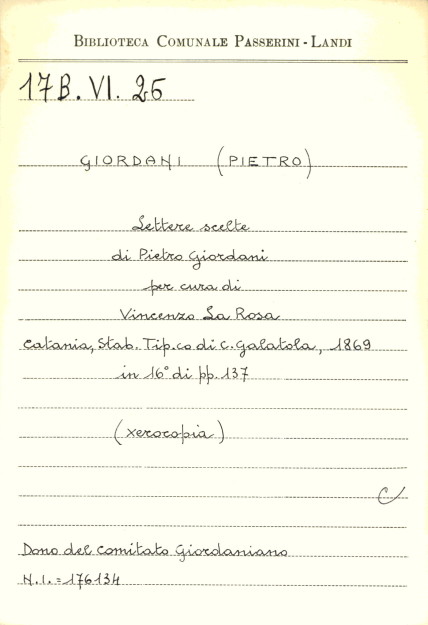 Biblioteca Comunale Passerini-Landi
17B. VI. 25
GIORDANI (PIETRO)
Lettere scelte
di Pietro Giordani
per cura di
Vincenzo La Rosa
Catania, Stab. Tip.co di C. Galatola, 1869
in 16° di pp. 137
(xerocopia)
C
Dono del Comitato Giordaniano
N.I. = 176134